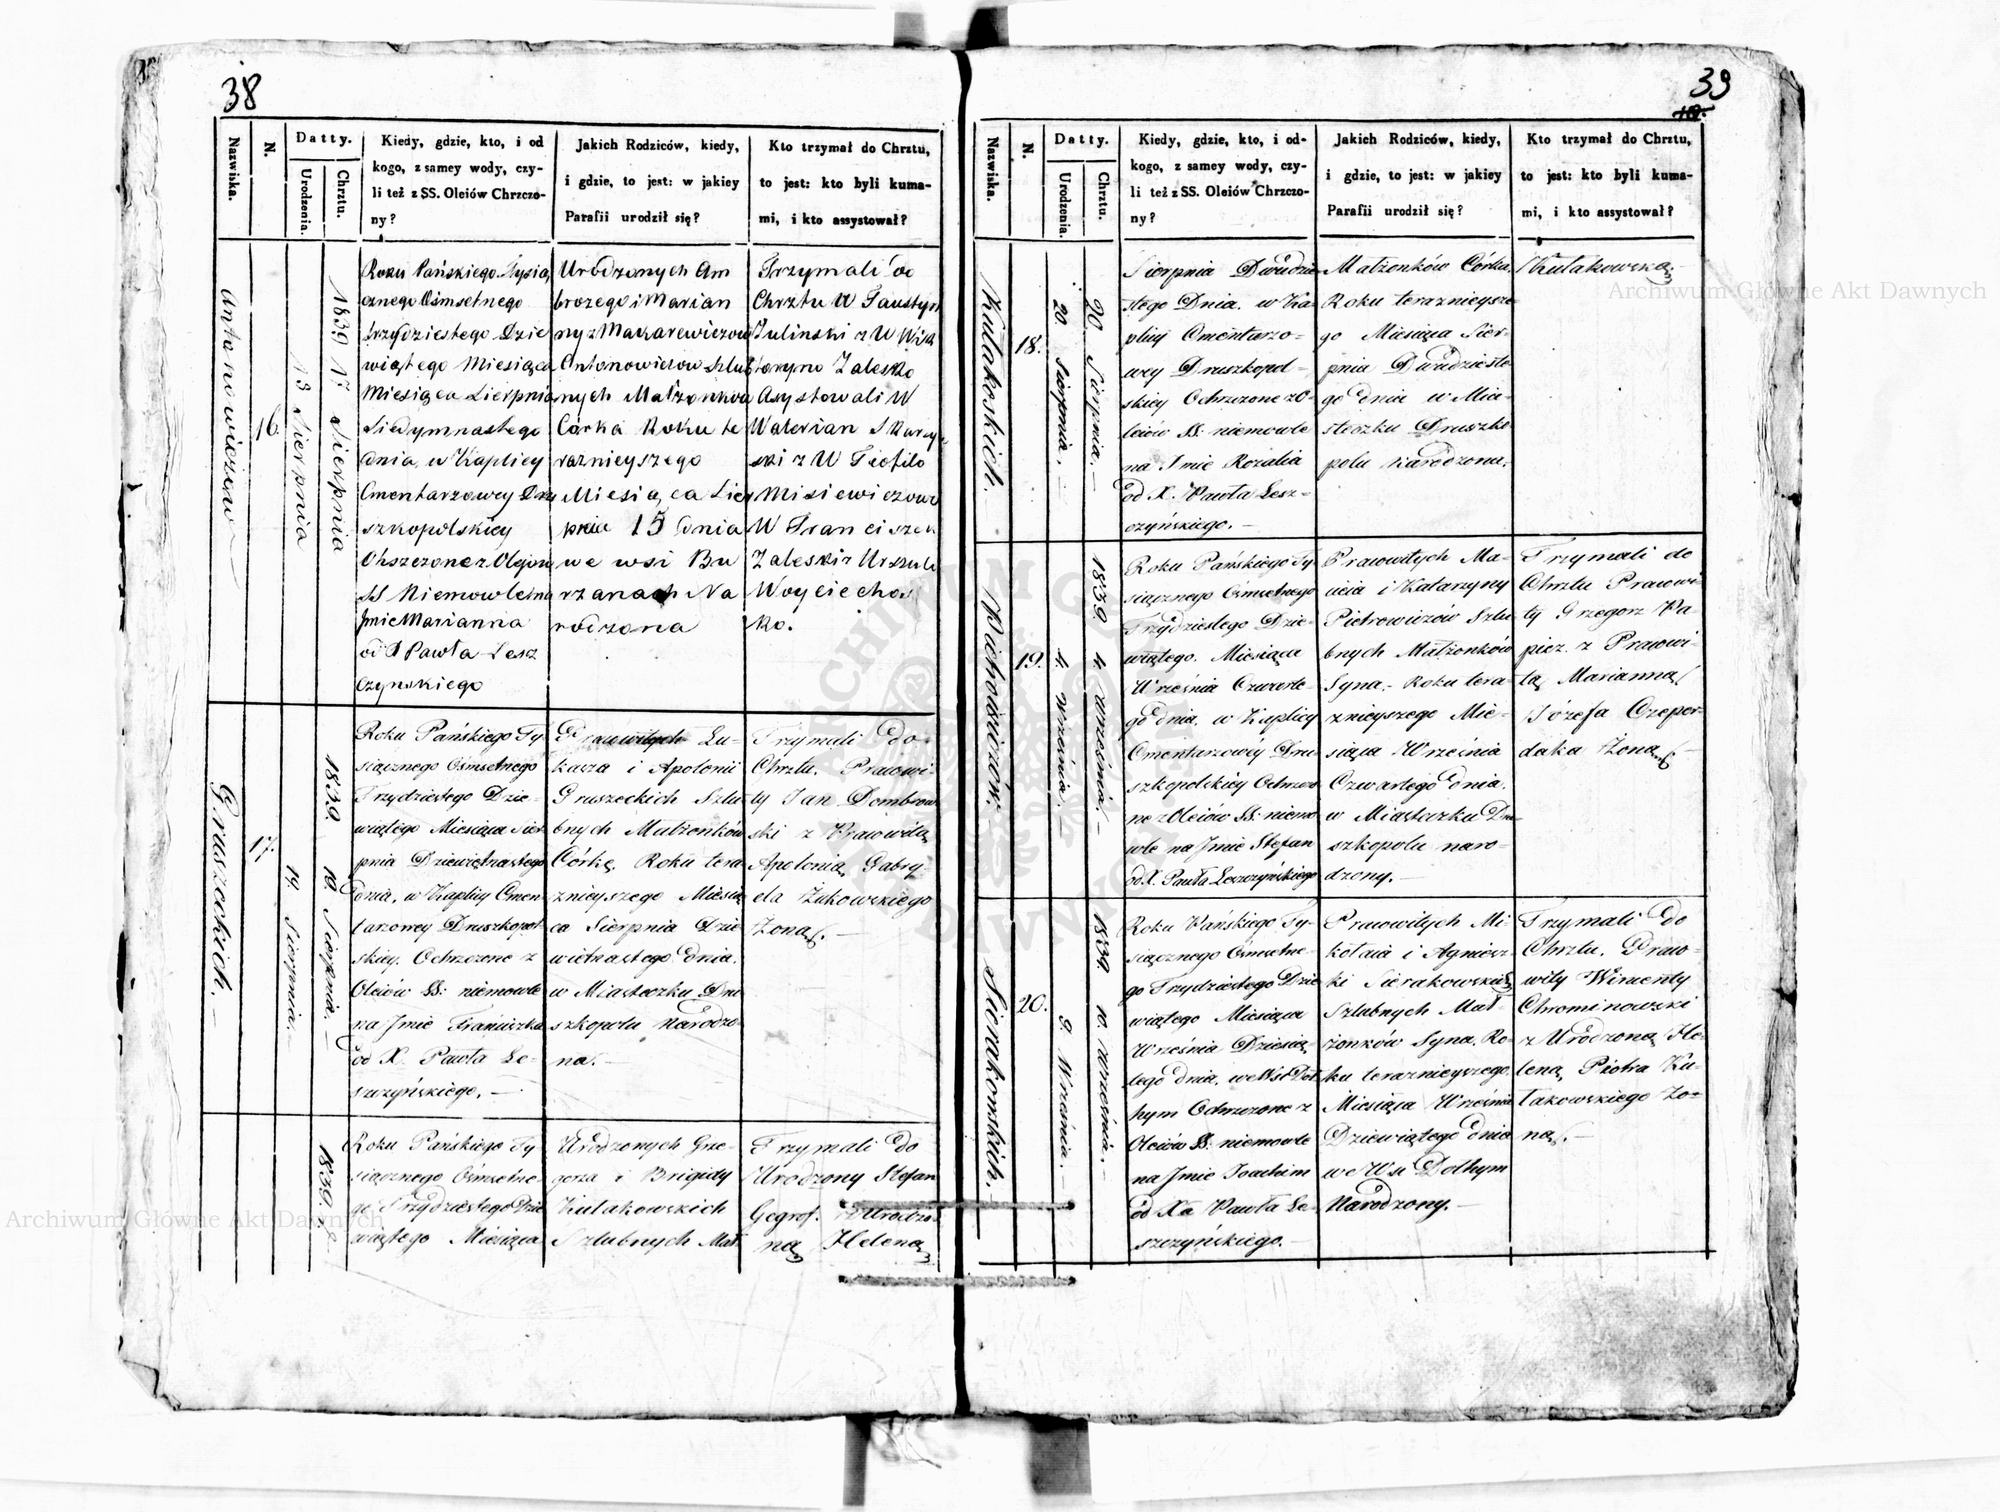 38
Nazwiska.
N.
Datty.
Urodzenia.
Chrztu.
Kiedy, gdzie, kto, i od
kogo, z samey wody, czy-
li też z SS. Oleiów Chrzczo-
ny?
Jakich Rodziców, kiedy,
i gdzie, to jest: w jakiey
Parafii urodził się?
Kto trzymał do Chrztu,
to jest: kto byli kuma-
mi, i kto assystował?
Antonowiczow
16.
13 Sierpnia
1839 17 Sierpnia
Roku Pańskiego Tysią
cznego Ośmsetnego
trzydziestego Dzie
wiątego Miesiąca
Miesiąca Sierpnia
Siedymnastego
dnia, w Kaplicy
Cmentarzowey Dru
szkopolskiey
Ohszczone z Olejow
SS Niemowle na
Jmie Marianna
od X Pawła Lesz
czynskiego
Urodzonych Am
brozego i Marian
ny z Makarewiczow
Antonowiczow szlub
nych Małżonkow
Córka Roku te
raznieyszego
Miesiąca Sier
pnia 15 dnia
we wsi Bu
rzanach Na
rodzona
Trzymali do
Chrztu W Faustyn
Julinski z W Wik
toryno Zalesko
Asystowali W
Walerian Skarzy
ski z W Teofilo
Misiewiczowo
W Franciszek
Zaleski z Urszulo
Woyciechos
ko.
Gruszeckich.
17.
19. Sierpnia.
1839. 19. Sierpnia.
Roku Pańskiego Ty-
siącznego Ośmsetnego
Trzydziestego Dzie-
wiątego Miesiąca Sier
pnia Dziewiętnastego
dnia, w Kaplicy Cmen
tarzowey Druszkopol
skiey. Ochrzczone z
Oleiów SS: niemowle
na Jmie Franciszka
od X. Pawła Le-
szczyńskiego.
Prawowitych Łu-
kasza i Apolonii
Gruszeckich Szlu
bnych Małżonków
Córkę, Roku tera
znieyszego Miesią
ca Sierpnia Dzie
wietnastego dnia.
w Miasteczku Dru
szkopolu Narodzo-
na.
Trzymali do
Chrztu. Prawowi-
ty Jan Dombrow
ski z Prawowitą
Apolonią Gabry-
ela Żukowskiego
Żoną.
1839.
Roku Pańskiego Ty
siącznego Ośmsetne-
go Trzydziestego Dzie
wiątego Miesiąca
Urodzonych Grze-
gorza i Brigidy
Kułakowskich
Szlubnych Mał
Trzymali do
Urodzony Stefan
Gegrof. z Urodzo
ną Heleną
39
Nazwiska.
N.
Datty.
Urodzenia.
Chrztu.
Kiedy, gdzie, kto, i od-
kogo, z samey wody, czy-
li też z SS. Oleiów Chrzczo-
ny?
Jakich Rodziców, kiedy,
i gdzie, to jest: w jakiey
Parafii urodził się?
Kto trzymał do Chrztu,
to jest: kto byli kuma-
mi, i kto assystował?
Kułakoskich.
18.
20. Sierpnia.
20. Sierpnia.
Sierpnia Dwudzie
stego Dnia. w Ka
plicy Cmentarzo-
wey Druszkopol-
skiey Ochrzczone z O-
leiów SS: niemowle
na Jmie Rozalia
od X. Pawła Lesz-
czyńskiego.
Małżonków Córka
Roku teraznieysze
go Miesiąca Sier-
pnia Dwudzieste
go dnia w Mia-
steczku Druszko
polu Narodzona.
Kułakowską.
Pietrowiczów.
19.
4. Września.
1839. 4. Września.
Roku Pańskiego Ty-
siącznego Ośmsetnego
Trzydziestego Dzie-
wiątego. Miesiąca
Września Czwarte-
go dnia, w Kaplicy
Cmentarzowéy Dru
szkopolskiey Ochrzczo
ne z Oleiów SS: niemo
wle na Jmie Stefan
od X. Pawła Leszczyńskiego
Prawowitych Ma-
cieia i Katarzyny
Pietrowiczów Szlu
bnych Małżonków
Syna. Roku tera-
znieyszego Mie-
siąca Września
Czwartego dnia.
w Miasteczku Dru
szkopolu naro-
dzony.
Trzymali do
Chrztu Prawowi-
ty Grzegorz Pa-
piez z Prawowi-
tą Marianną
Józefa Czeper-
daka Żoną
Sierakowskich.
20.
9. Września.
1839 10. Września.
Roku Pańskiego Ty-
siącznego Ośmsetne-
go Trzydziestego Dzie
wiątego Miesiąca
Września Dziesią
tego dnia, we Wsi Doł
hym Ochrzczone z
Oleiów SS: niemowle
na Jmie Joachim
od Xa Pawła Le-
szczyńskiego.
Prawowitych Mi-
kołaia i Agniesz-
ki Sierakowskich
Szlubnych Mał-
żonków Syna. Ro-
ku teraznieyszego
Miesiąca Września
Dziewiątego dnia
we Wsi Dołhym
Narodzony.
Trzymali do
Chrztu. Prawo-
wity Wincenty
Chrominowski
z Urodzoną He-
leną Piotra Ku-
łakowskiego Żo-
ną.
Archiwum Główne Akt Dawnych
Archiwum Główne Akt Dawnych